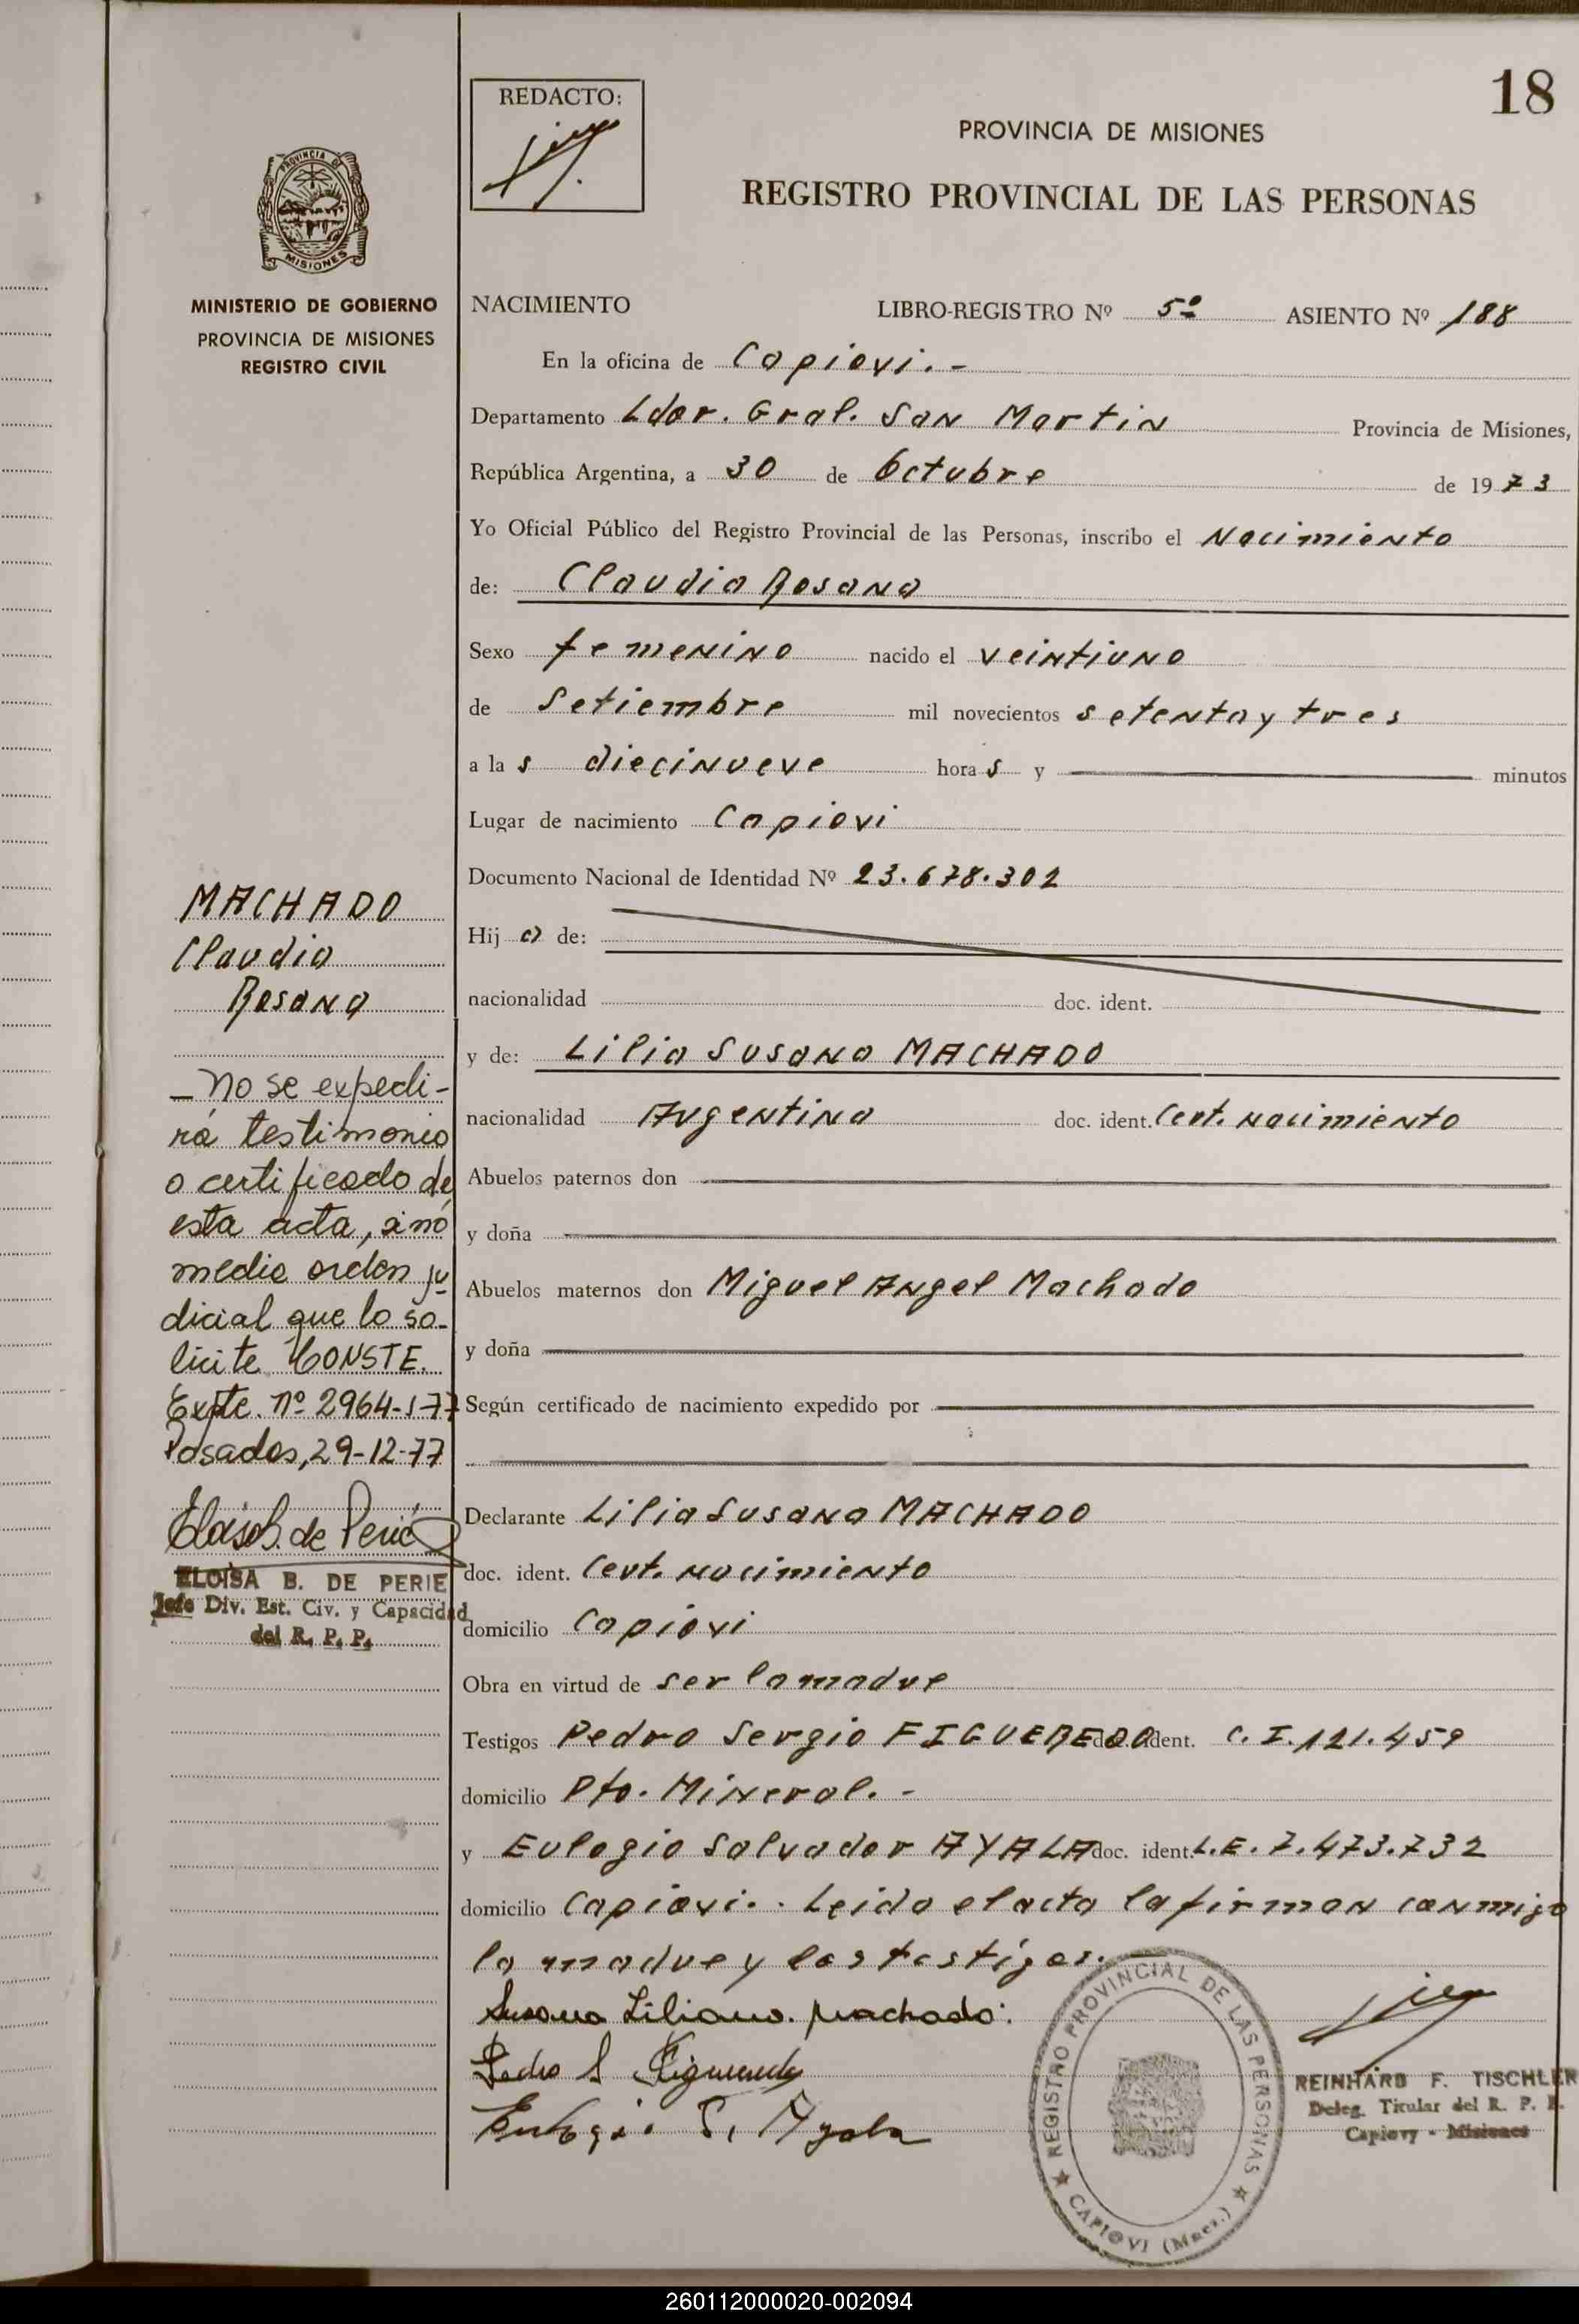 18
REDACTO:
PROVINCIA DE MISIONES
REGISTRO PROVINCIAL DE LAS PERSONAS
PROVINCIA DE
MISIONES
MINISTERIO DE GOBIERNO
PROVINCIA DE MISIONES
REGISTRO CIVIL
NACIMIENTO LIBRO-REGISTRO Nº 5º ASIENTO Nº 188
En la oficina de Capiovi.-
Departamento Ldor. Gral. San Martin Provincia de Misiones,
República Argentina, a 30 de Octubre de 1973
Yo Oficial Público del Registro Provincial de las Personas, inscribo el Nacimiento
de: Claudia Rosana
Sexo femenino nacido el veintiuno
de Setiembre mil novecientos setenta y tres
a la s diecinueve hora s y minutos
Lugar de nacimiento Capiovi
Documento Nacional de Identidad Nº 23.678.302
Hij a de:
nacionalidad doc. ident.
y de: Lilia Susana MACHADO
nacionalidad Argentina doc. ident. Cert. nacimiento
Abuelos paternos don
y doña
Abuelos maternos don Miguel Angel Machado
y doña
Según certificado de nacimiento expedido por
Declarante Lilia Susana MACHADO
doc. ident. Cert. nacimiento
domicilio Capiovi
Obra en virtud de ser la madre
Testigos Pedro Sergio FIGUEREDO doc. ident. C.I. 121.459
domicilio Pto. Mineral.-
y Eulogio Salvador AYALA doc. ident. L.E. 7.473.732
domicilio Capiovi.. Leido el acta la firman conmigo
la madre y los testigos.-
Susana Liliana. Machado.
Pedro S Figueredo
Eulogio S. Ayala
MACHADO
Claudia
Rosana
_ No se expedi-
rá testimonio
o certificado de
esta acta, sinó
medie orden ju
dicial que lo so-
licite CONSTE.
Expte. nº 2964-S-77
Posadas, 29-12-77
Eloisa B. de Perié
ELOISA B. DE PERIE
Jefe Div. Est. Civ. y Capacidad
del R. P. P.
REGISTRO PROVINCIAL DE LAS PERSONAS
CAPIOVI (Mnes.)
REINHARD F. TISCHLER
Deleg. Titular del R. P. P.
Capiovy - Misiones
260112000020-002094